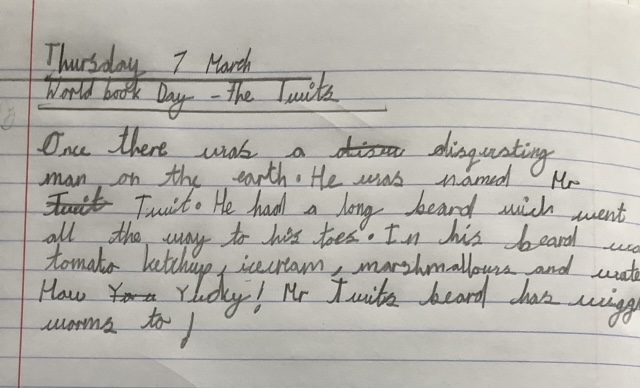 Thursday 7 March
World book Day - The Twits
Once there was a disgusting
man on the earth. He was named Mr
Twit. He had a long beard wich went
all the way to his toes. In his beard
tomato ketchup, icecream, marshmallows and
How Yucky! Mr Twits beard has
worms to!